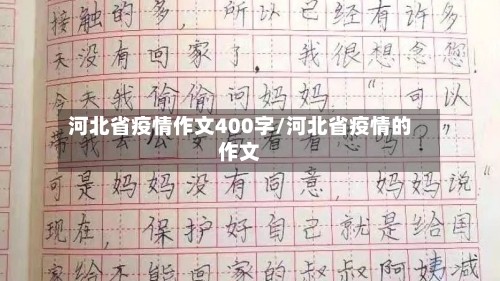 接触的多，所以已经有许多
天没有回家了，我很想念您
今天我偷偷问妈妈"可以
河北省疫情作文400字/河北省疫情的
作文
带我去
可是妈妈没有同意，妈妈说"
现在，保护好自己就是给国
家给不能回家的叔叔阿姨减